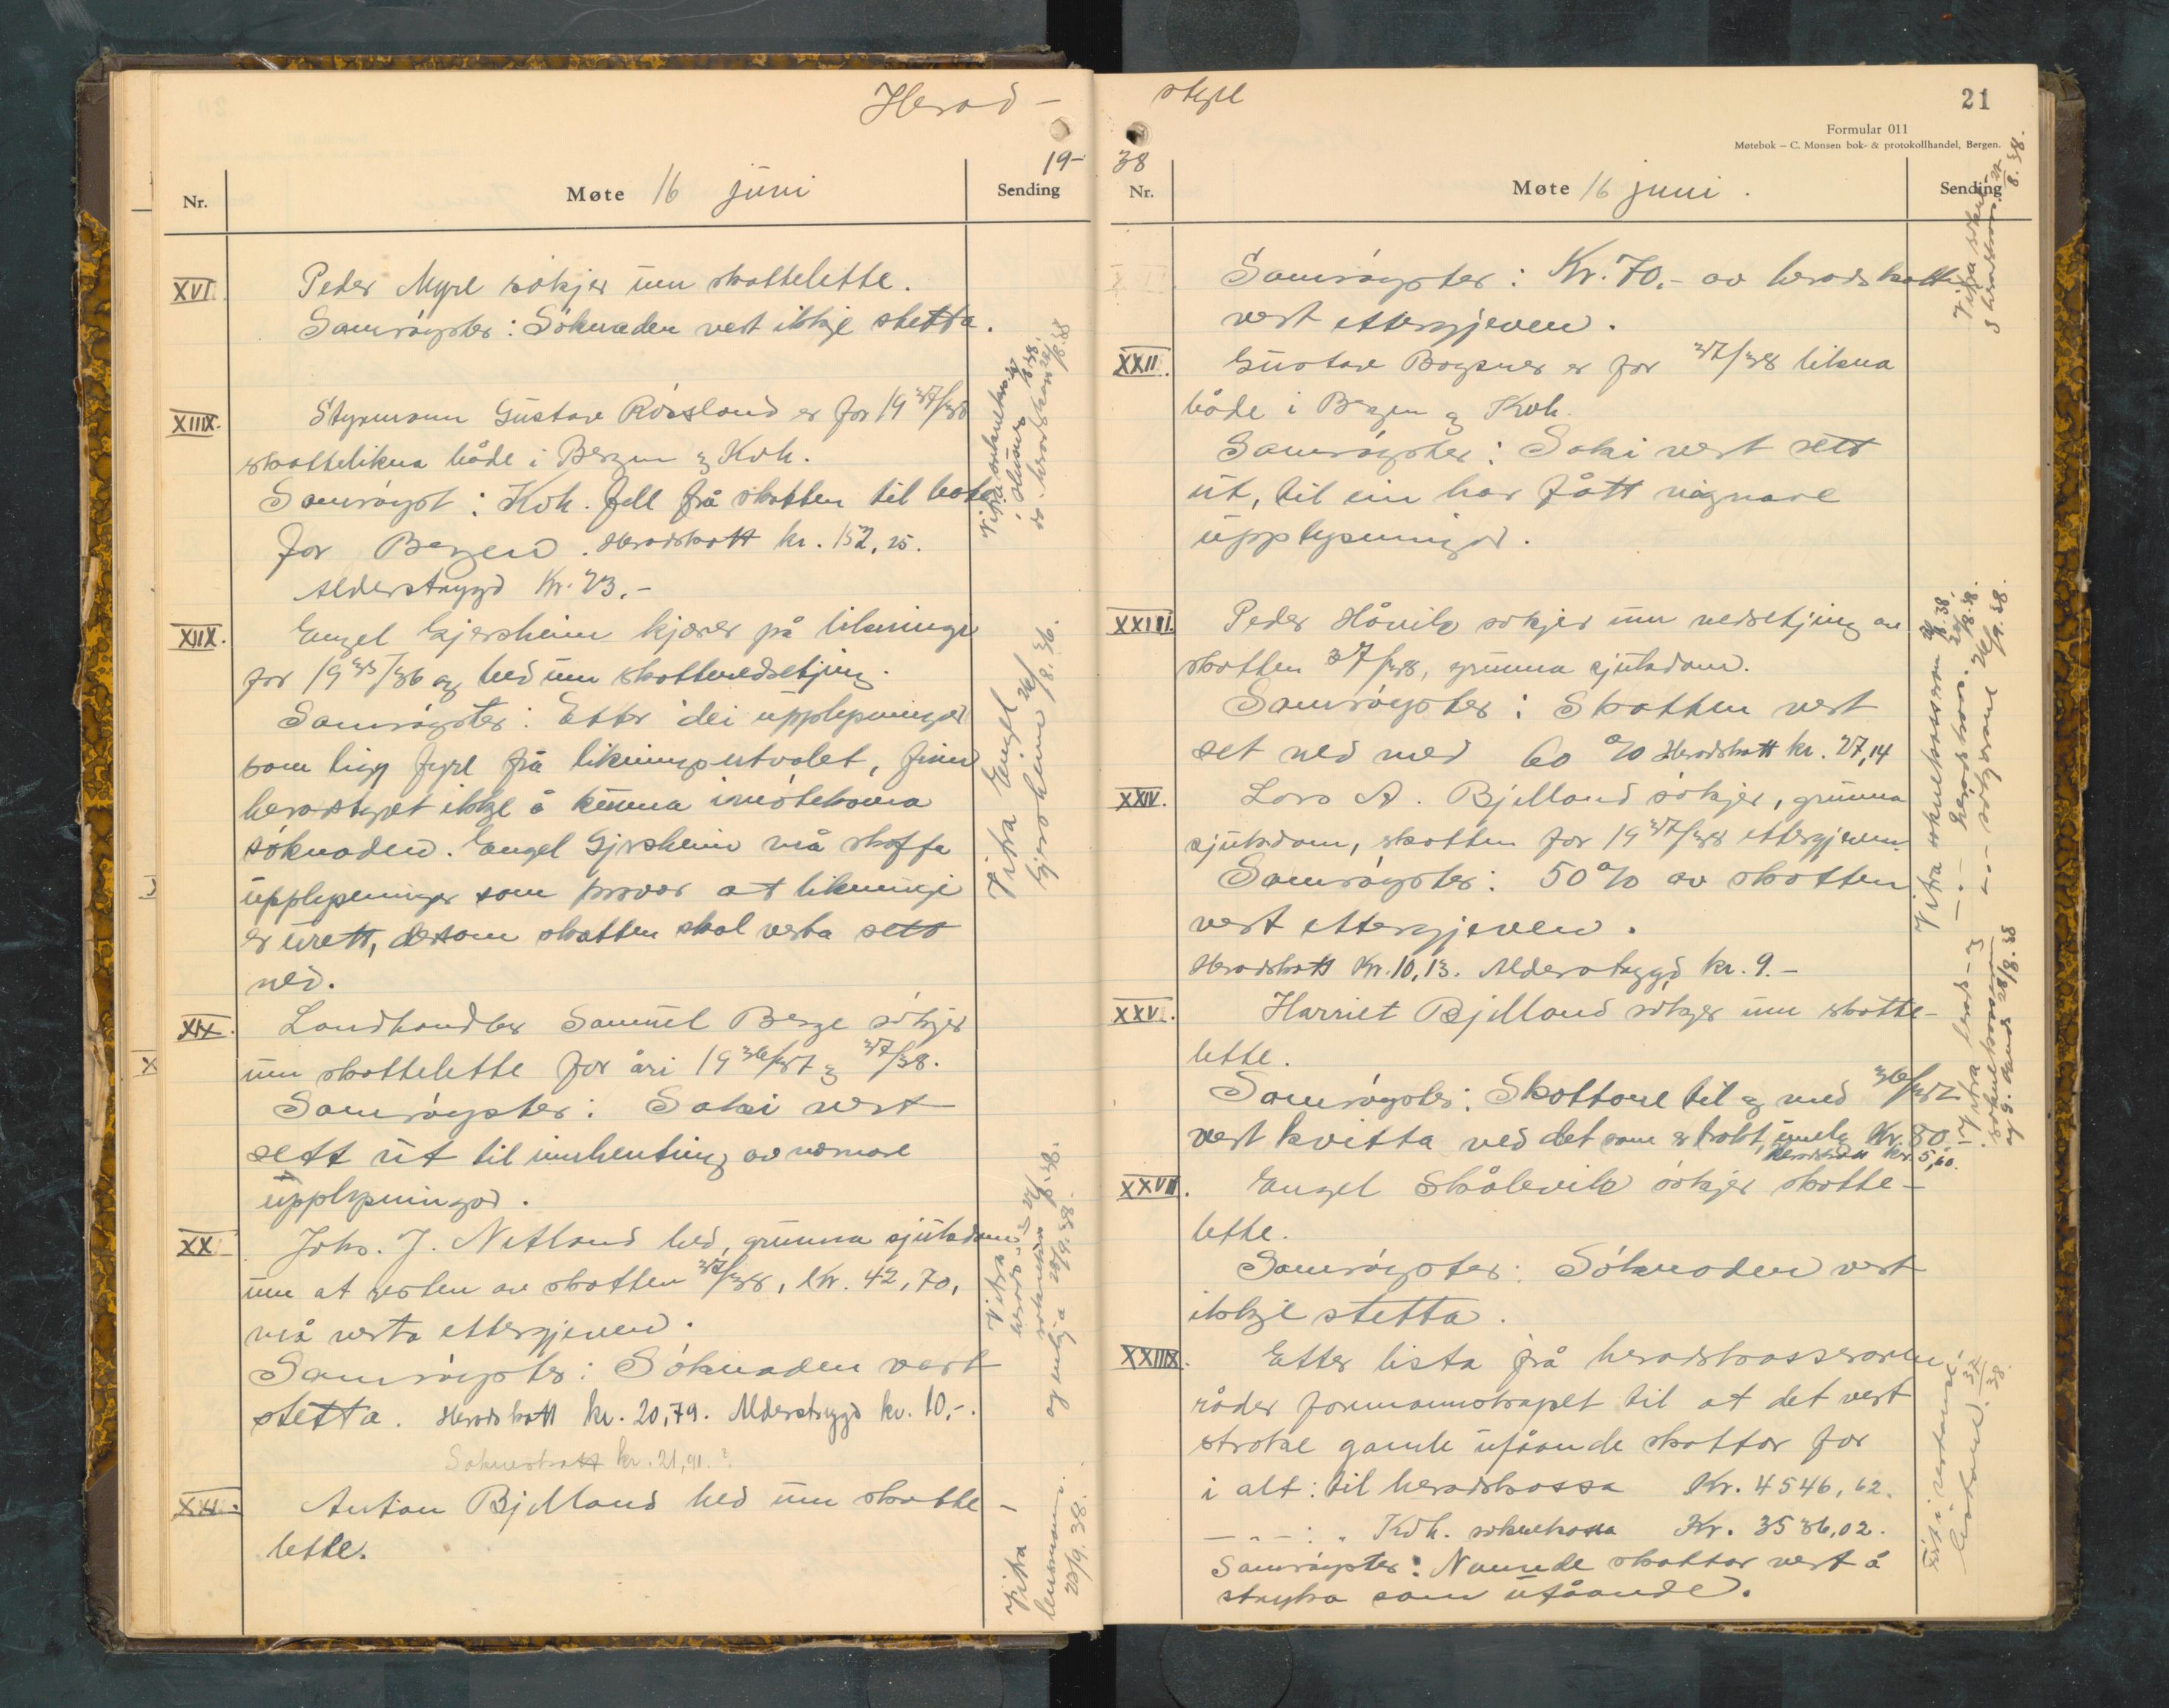 Herad-
19-
Nr.
Møte 16 juni
Sending
XVI. Peder Myre søkjer um skattelette.
Samrøystes: Søknaden vert ikkje stetta.
XIIX. Styrmann Gustav Røssland er for 1937/38
skattelikna både i Bergen og Kvh.
Samrøyst: Kvh. fell frå skatten til bate
for Bergen. Heradskatt kr. 152,25.
Alderstrygd Kr. 23.-
XIIX. Engel Gjersheim kjærer på likningi
for 1935/36 og bed um skattnedsetjing.
Samrøystes: Etter dei upplysningar
som ligg fyre frå likningsutvalet, finn
heradstyret ikkje å kunna imøtekoma
søknaden. Engel Gjersheim må skaffa
upplysningar som provar at likningi
er urett, dersom skatten skal verta sett
ned.
XIX. Landhandlar Samuel Berge søkjer
um skattelette for åri 1936/37 og 37/38.
Samrøystes: Saki vert
sett ut til innhenting av nærmare
upplysningar.
XX Johs. J. Netland bed, grunna sjukdom
um at resten av skatten 37/38, kr. 42,70,
må verta ettergjeven.
Samrøystes: Søknaden vert
stetta. Heradskatt kr. 20,79. Alderstrygd kr. 10,-.
Sokneskatt kr. 21,91.?
XXI. Anton Bjelland bed um skatte-
lette.
Vitra Engel
Gjersheim 26/8.36.
Vitra
lensmann
23/9.38.
styre
21
Formular 011
Møtebok – C. Monsen bok- & protokollhandel, Bergen.
38
Nr.
Møte 16 juni.
Sending
Samrøystes: Kr. 70.- av heradskatten
vert ettergjeven.
XXII. Gustav Bogsnes er for 37/38 likna
både i Bergen og Kvh.
Samrøystes: Saki vert sett
ut, til ein har fått nøgnare
upplysningar.
XXIII. Peder Håvik søkjer um nedsetjing av
skatten 37/38, grunna sjukdom.
Samrøystes: Skatten vert
set ned med 60 % Heradskatt kr. 27,14
XXIV. Lars A. Bjelland søkjer, grunna
sjukdom, skatten for 1937/38 ettergjeven.
Samrøystes: 50 % av skatten
vert ettergjeven.
Heradskatt Kr. 10,13. Alderstrygd kr. 9.-
XXV. Harriet Bjelland søkjer um skatte-
lette.
Samrøystes: Skattane til og med 36/37
vert kvitta ved det som er trekt, Kr. 80
Heradskatt kr. 5,60.
XXVII. Engel Skålevik søkjer skatte-
lette.
Samrøystes: Søknaden vert
ikkje stetta.
XXIIX. Etter lista frå heradskasseraren
råder formannskapet til at det vert
stroke gamle uføande skattar for
i alt: til heradskassa Kr. 4546,62.
— " — : " Kvh. soknekassa Kr. 3536,02.
Samrøystes: Nemnde skattar vert å
stryka som uføande.
Vitra soknekasseraren 22/8.38.
—"— heradskass. 22/8.38.